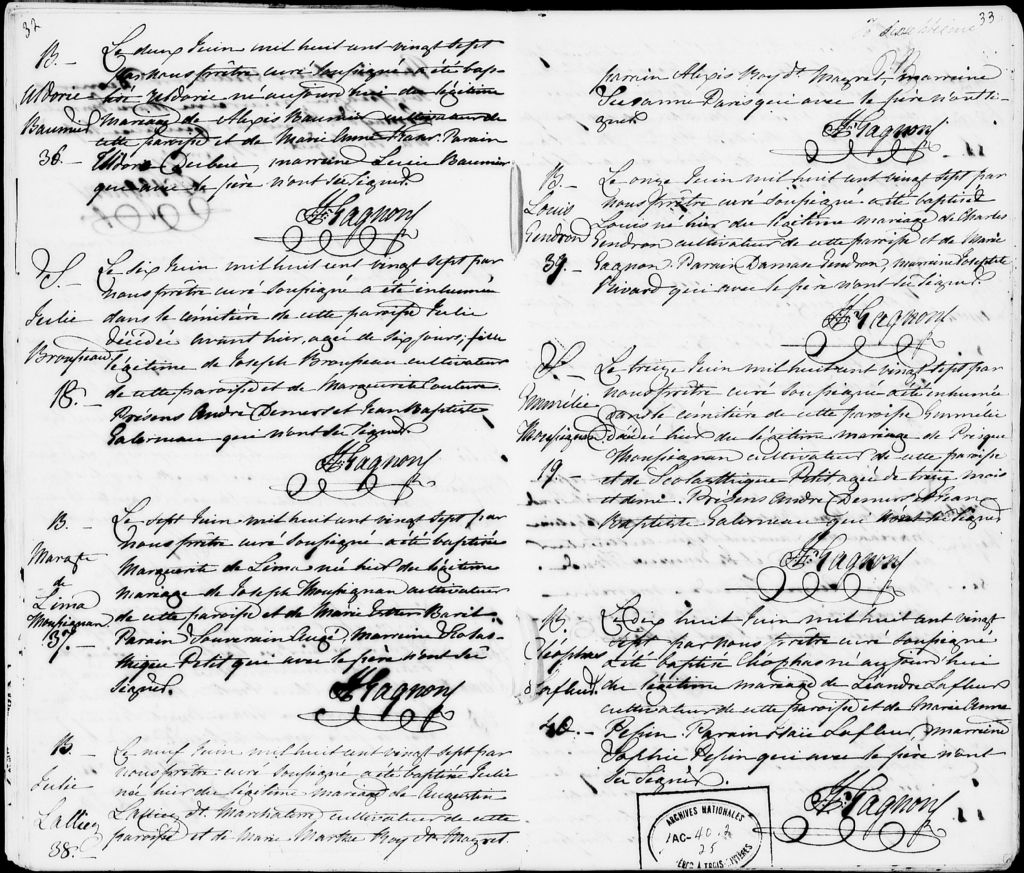 32
B. –
Baumier
36. –
Le deux Juin mil huit cent vingt sept
par nous prêtre curé soussigné a été bap-
né aujourd'hui du légitime
mariage de Alexis Baumier cultivateur de
cette paroisse et de Marie Anne Parain
marreine Lucie Baumier
qui avec le père n'ont su signer.
Js. Gagnon
S. –
Julie
Brousseau
18. –
Le six Juin mil huit cent vingt sept par
nous prêtre curé soussigné a été inhumée
dans le cemitière de cette paroisse Julie
décédée avant hier, agée de six jours, fille
légitime de Joseph Brousseau cultivateur
de cette paroisse et de Marguerite Couture
Présens André Demers et Jean Baptiste
Galerneau qui n'ont su signer
Js. Gagnon
B. –
Margte
de
Lima
Monpignan
37. –
Le sept Juin mil huit cent vingt sept par
nous prêtre curé soussigné a été baptisée
Marguerite de Lima née hier du légitime
mariage de Joseph Monpignan cultivateur
de cette paroisse et de Marie Baril
Parain Souverain Augé, Marreine Scolas-
thique Petit qui avec le père n'ont su
signer.
Js. Gagnon
B. –
Julie
38. –
Le neuf Juin mil huit cent vingt sept par
nous prêtre curé soussigné a été baptisée Julie
née hier du légitime mariage de Augustin
dt. cultivateur de cette
paroisse et de Marie Marthe Roy dt. Magret
33
parrain Alexis Roy dt. Magret, marreine
Susanne Paris qui avec le père n'ont si-
gner
Js. Gagnon
B. –
Louis
Gendron
39. –
Le onze Juin mil huit cent vingt sept par
nous prêtre curé soussigné a été baptisé
Louis né hier du légitime mariage de Charles
Gendron cultivateur de cette paroisse et de Marie
Gagnon. Parain Damase Gendron, marreine Josephte
Rivard qui avec le père n'ont su signer
Js. Gagnon
S. –
Emmélie
Monpignan
19. –
Le treize Juin mil huit cent vingt sept par
nous prêtre curé soussigné a été inhumée
dans le cemitière de cette paroisse Emmélie
décédée hier du légitime mariage de Prisque
Monpignan cultivateur de cette paroisse
et de Scolasthique Petit agée de treize mois
et demi. Présens André Demers et Jean
Baptiste Galerneau qui n'ont su signer
Js. Gagnon
B. –
Cléophas
Lafleur
40. –
Le dix huit Juin mil huit cent vingt
sept par nous prêtre curé soussigné
a été baptisé Cléophas né aujourd'hui
du légitime mariage de Léandre Lafleur
cultivateur de cette paroisse et de Marie Anne
Pepin. Parain Isaie Lafleur, marreine
Sophie Pepin qui avec le père n'ont
su signer.
Js. Gagnon
ARCHIVES NATIONALES
25